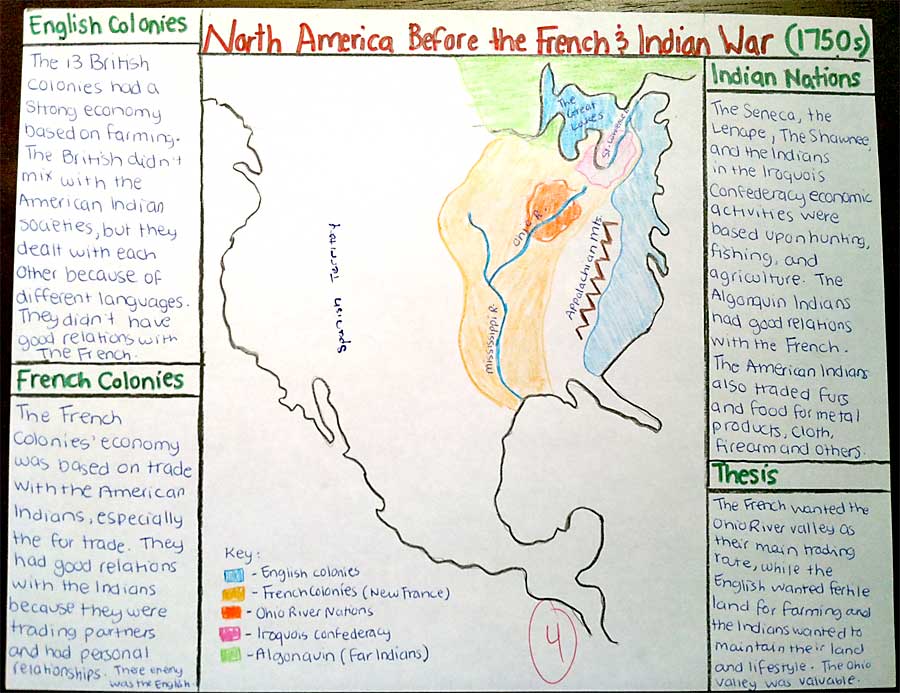 North America Before the French & Indian War (1750s)
English Colonies
The 13 British
colonies had a
strong economy
based on farming.
The British didn't
mix with the
American Indian
societies, but they
dealt with each
other because of
different languages.
They didn't have
good relations with
The French.
French Colonies
The French
colonies' economy
was based on trade
with the American
Indians, especially
the fur trade. They
had good relations
with the Indians
because they were
trading partners
and had personal
relationships. There enemy
was the English.
The
Great
Lakes
St. Lawrence R.
Ohio R.
Appalachian Mts.
Mississippi R.
Key:
- English colonies
- French Colonies (New France)
- Ohio River Nations
- Iroquois Confederacy
- Algonquin (Far Indians)
4
Indian Nations
The Seneca, the
Lenape, The Shawnee,
and the Indians
in the Iroquois
Confederacy economic
activities were
based upon hunting,
fishing, and
agriculture. The
Algonquin Indians
had good relations
with the French.
The American Indians
also traded furs
and food for metal
products, cloth,
firearm and others.
Thesis
The French wanted the
Ohio River valley as
their main trading
route, while the
English wanted fertile
land for farming and
the Indians wanted to
maintain their land
and lifestyle. The Ohio
valley was valuable.